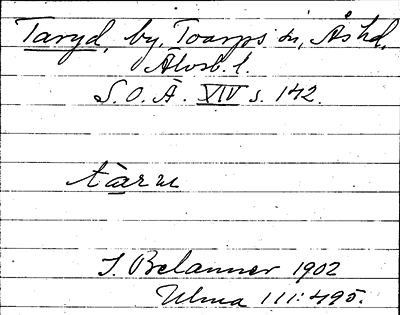 Taryd, by, Toarps sn, Ås hd,
Älvsb. l.
S.O.Ä. XIV s. 142.
tàrru
J. Belanner 1902
Ulma 111:495.